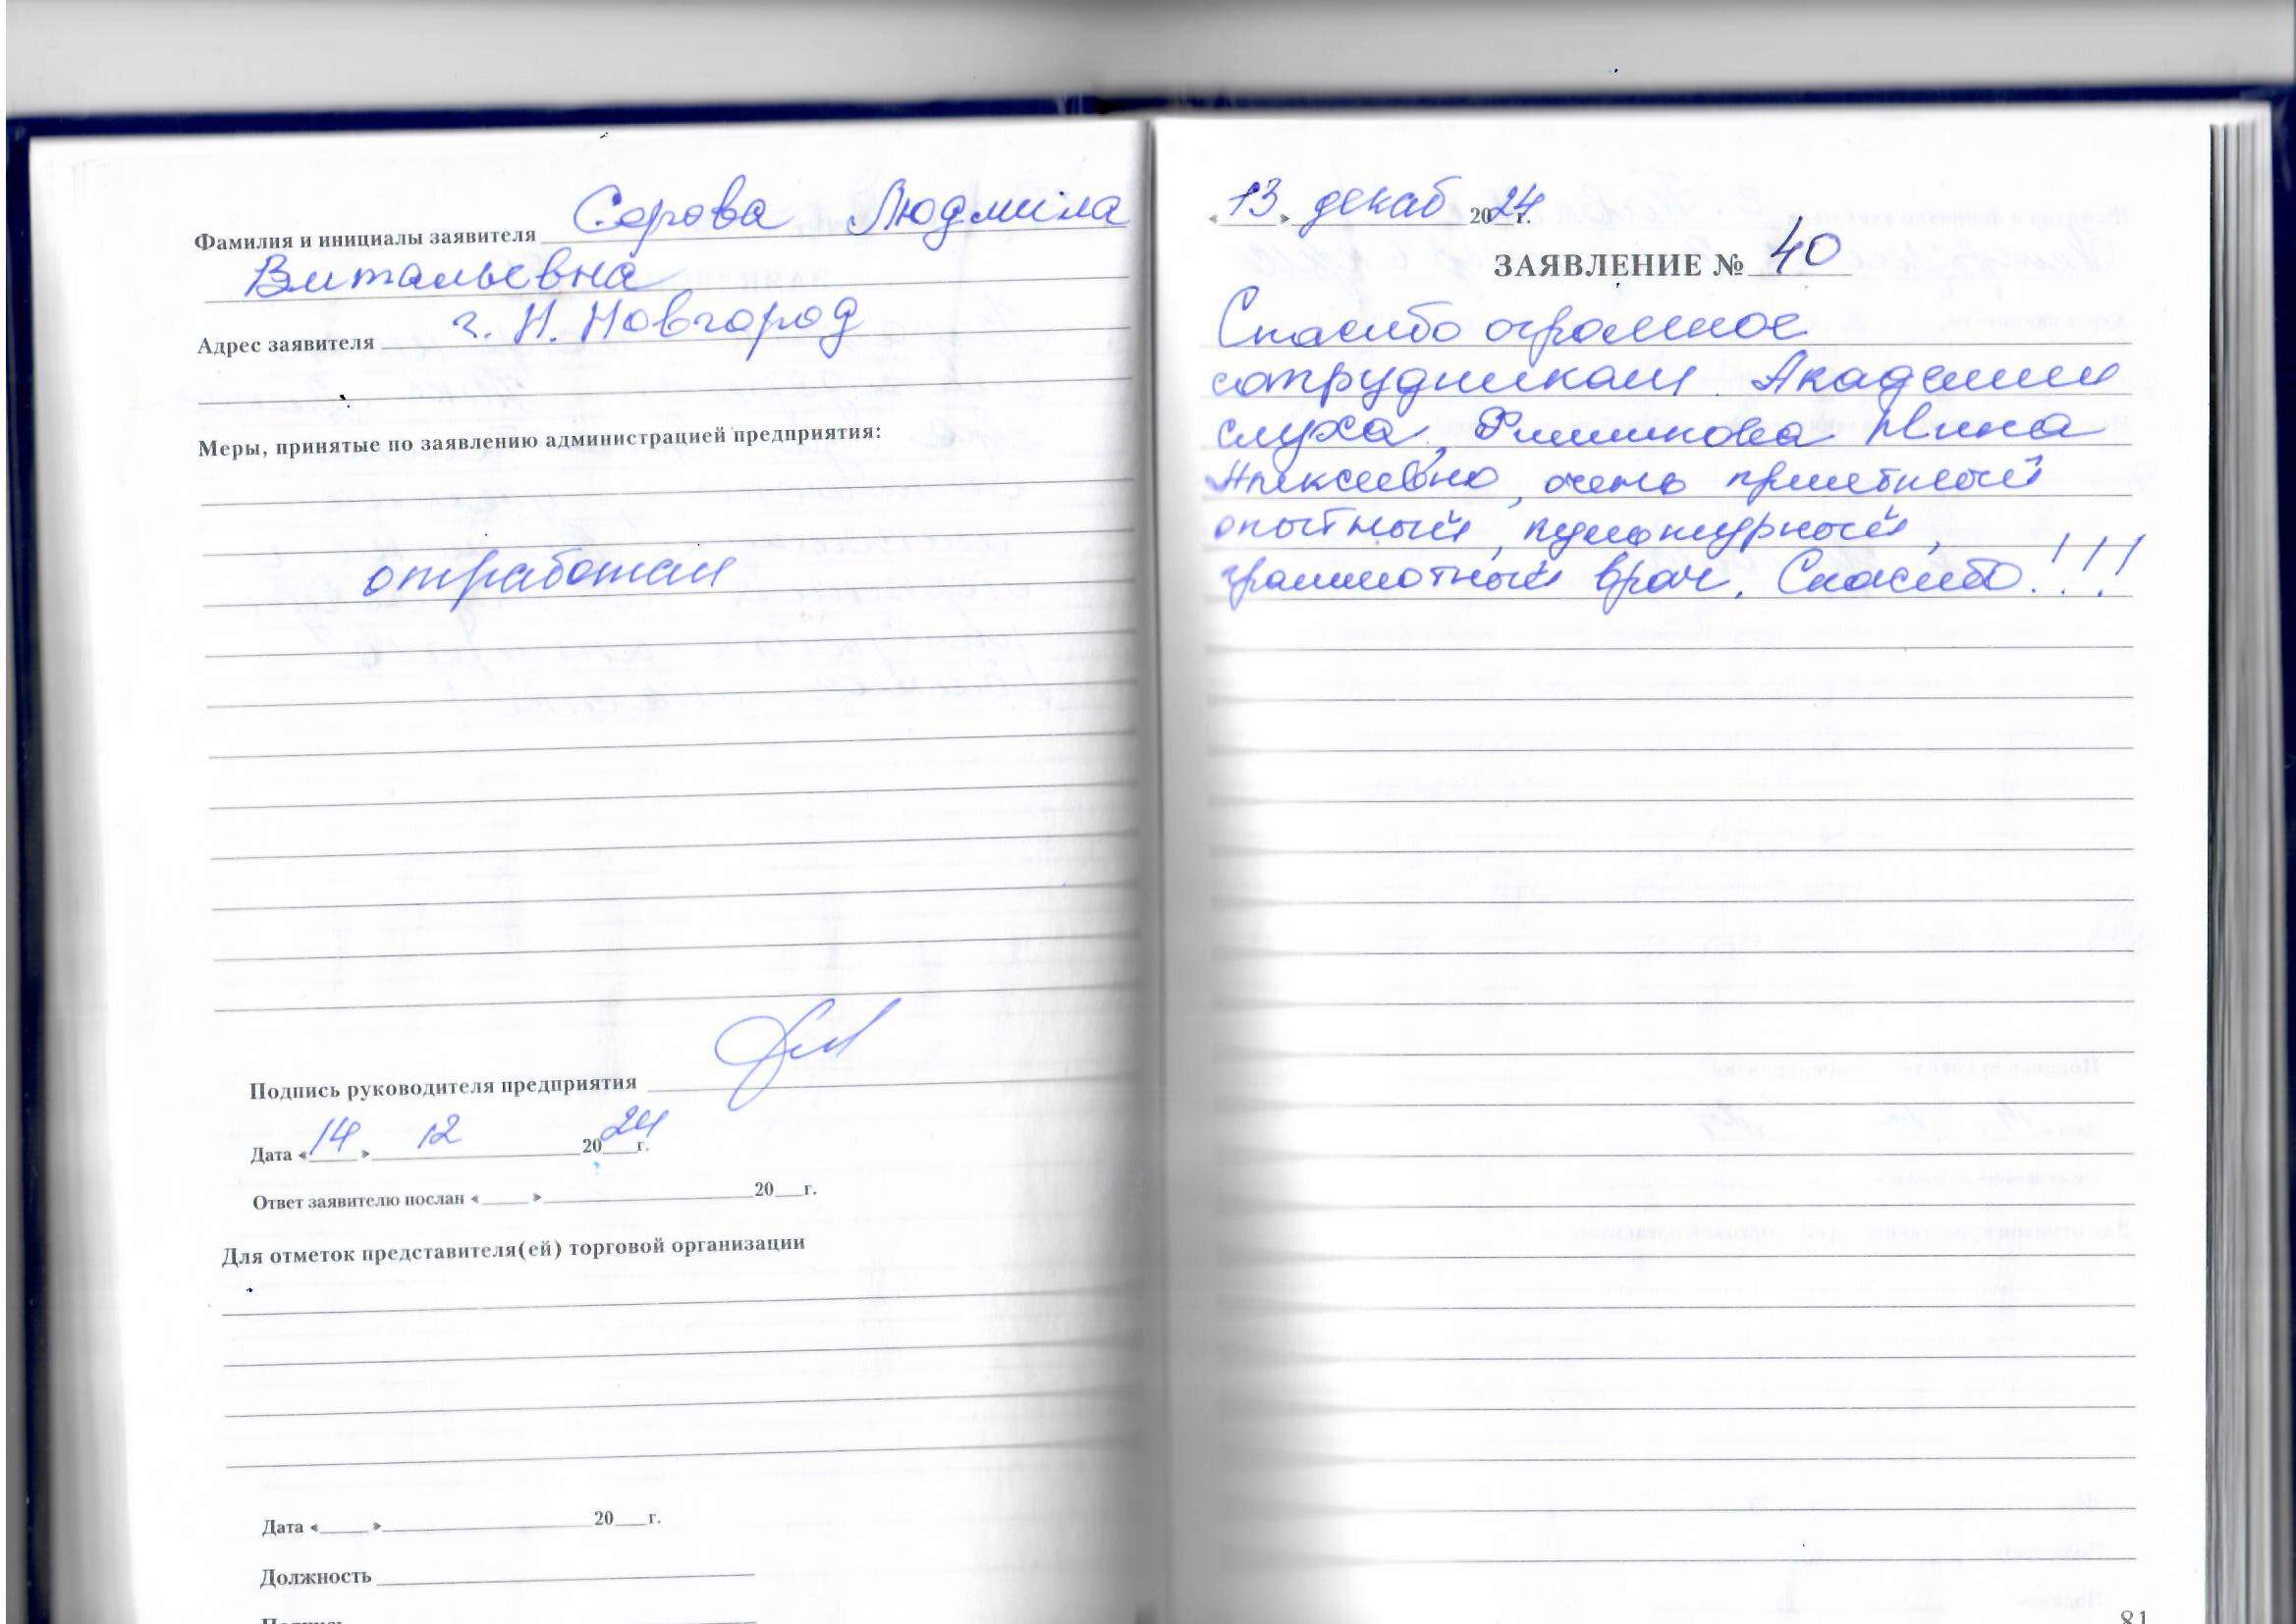 Фамилия и инициалы заявителя Серова Людмила
Витальевна
Адрес заявителя г. Н. Новгород
Меры, принятые по заявлению администрацией предприятия:
отработан
Подпись руководителя предприятия
Дата «14» 12 2024г.
Ответ заявителю послан « » 20 г.
Для отметок представителя(ей) торговой организации
Дата « » 20 г.
Должность
Подпись
«13» декаб 2024г.
ЗАЯВЛЕНИЕ № 40
Спасибо огромное
сотрудникам Академии
слуха, Нина
Алексеевна, очень приятный
опытный, пунктурный,
грамотный врач. Спасибо!!!
81